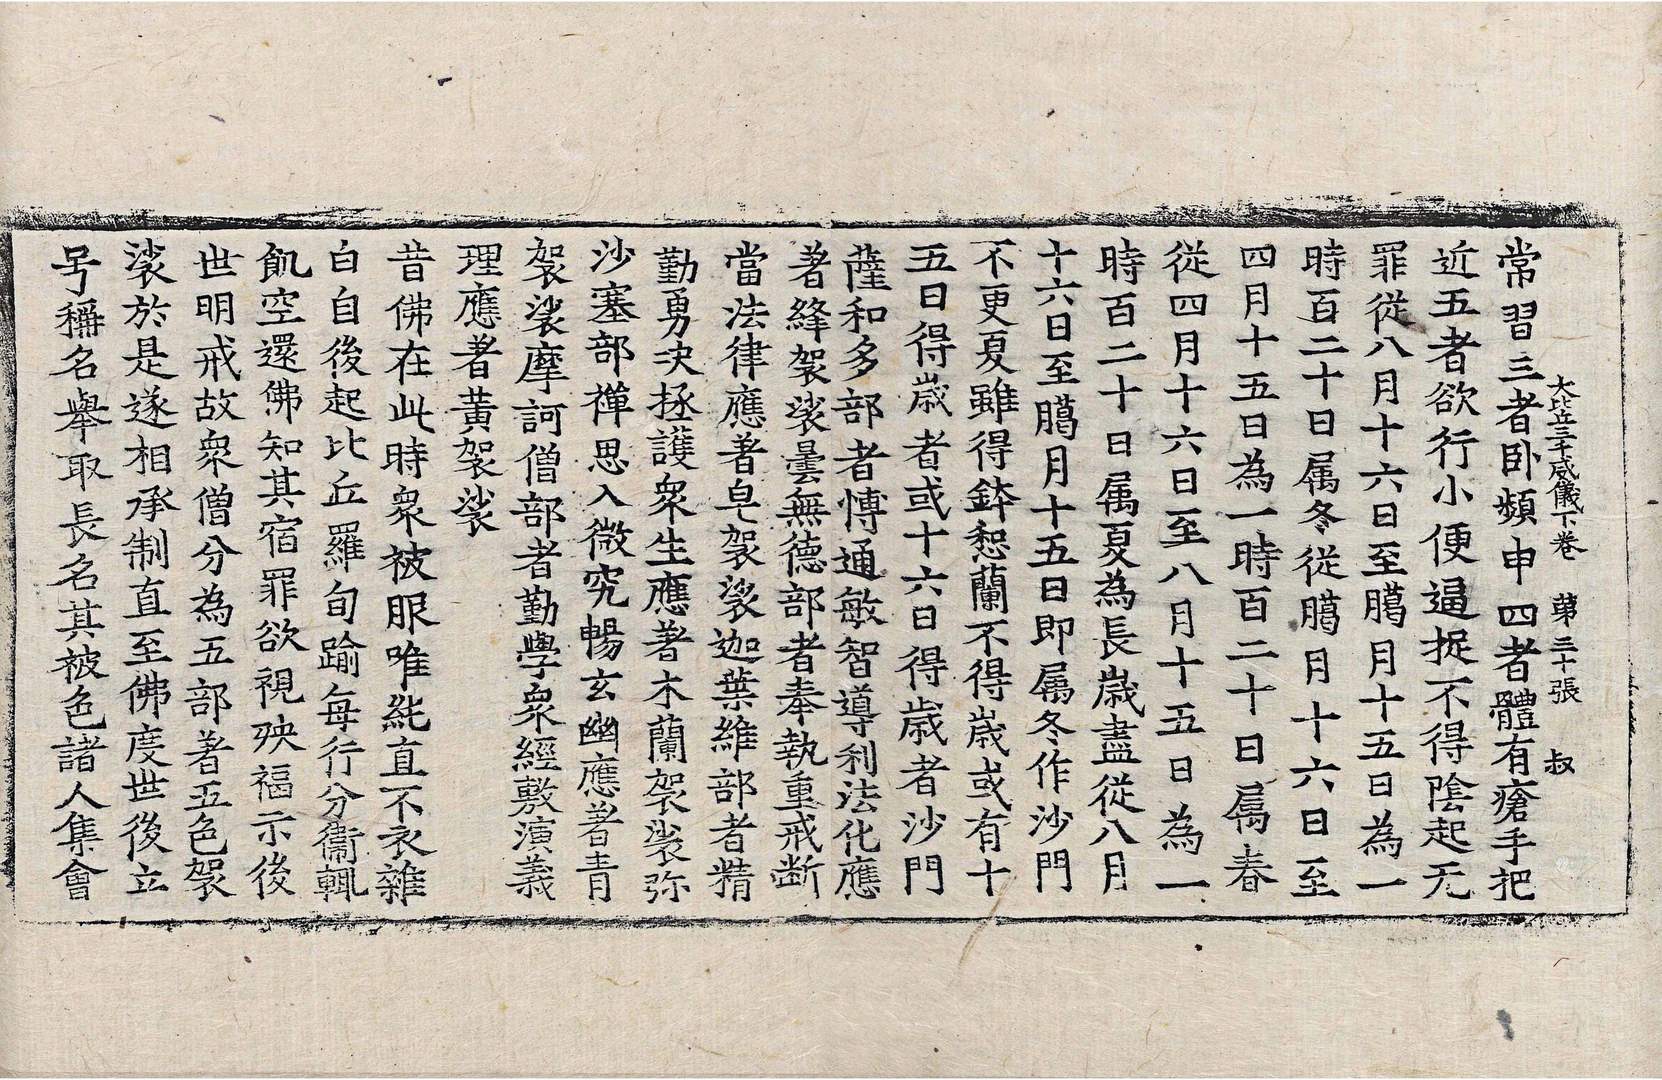 大比丘三千威儀下卷　第三十張　叔
常習三者卧頻申四者體有瘡手把
近五者欲行小便逼捉不得陰起无
罪從八月十六日至臈月十五日為一
時百二十日属冬從臈月十六日至
四月十五日為一時百二十日属春
從四月十六日至八月十五日為一
時百二十日属夏為長歳盡從八月
十六日至臈月十五日即属冬作沙門
不更夏雖得鉢惒蘭不得歳或有十
五日得歳者或十六日得歳者沙門
薩和多部者愽通敏智導利法化應
著絳袈裟曇無德部者奉執重戒断
當法律應著皂袈裟迦葉維部者精
勤勇决拯護衆生應著木蘭袈裟弥
沙塞部禪思入微究暢玄幽應著青
袈裟摩訶僧部者勤學衆經敷演義
理應著黃袈裟
昔佛在此時衆被服唯純直不衣雜
白自後起比丘羅旬踰每行分衞輒
飢空還佛知其宿罪欲視殃福示後
世明戒故衆僧分為五部著五色袈
裟於是遂相承制直至佛度世後立
号稱名舉取長名其被色諸人集會